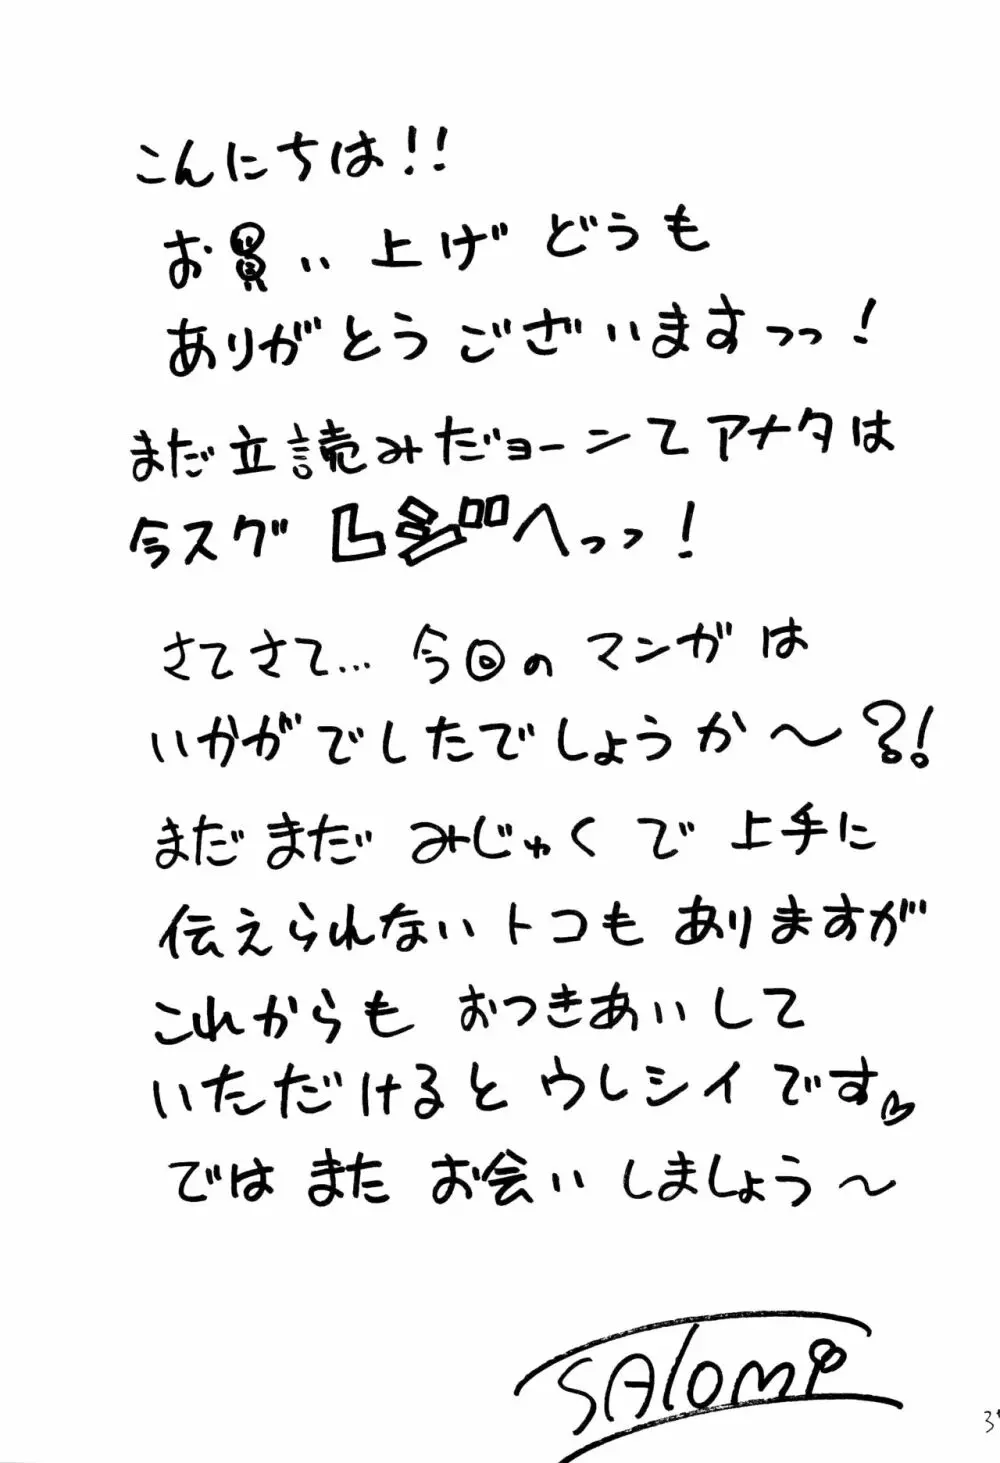 こんにちは!!
お買い上げ どうも
ありがとうございますっっ!
まだ立読みだョーンてアナタは
今スグ レジへっっ!
さてさて… 今回の マンガは
いかがでしたでしょうか～?!
まだまだ みじゅくで 上手に
伝えられないトコも ありますが
これからも おつきあいして
いただけると ウレシイです♡
では また お会い しましょう～
SAlomi